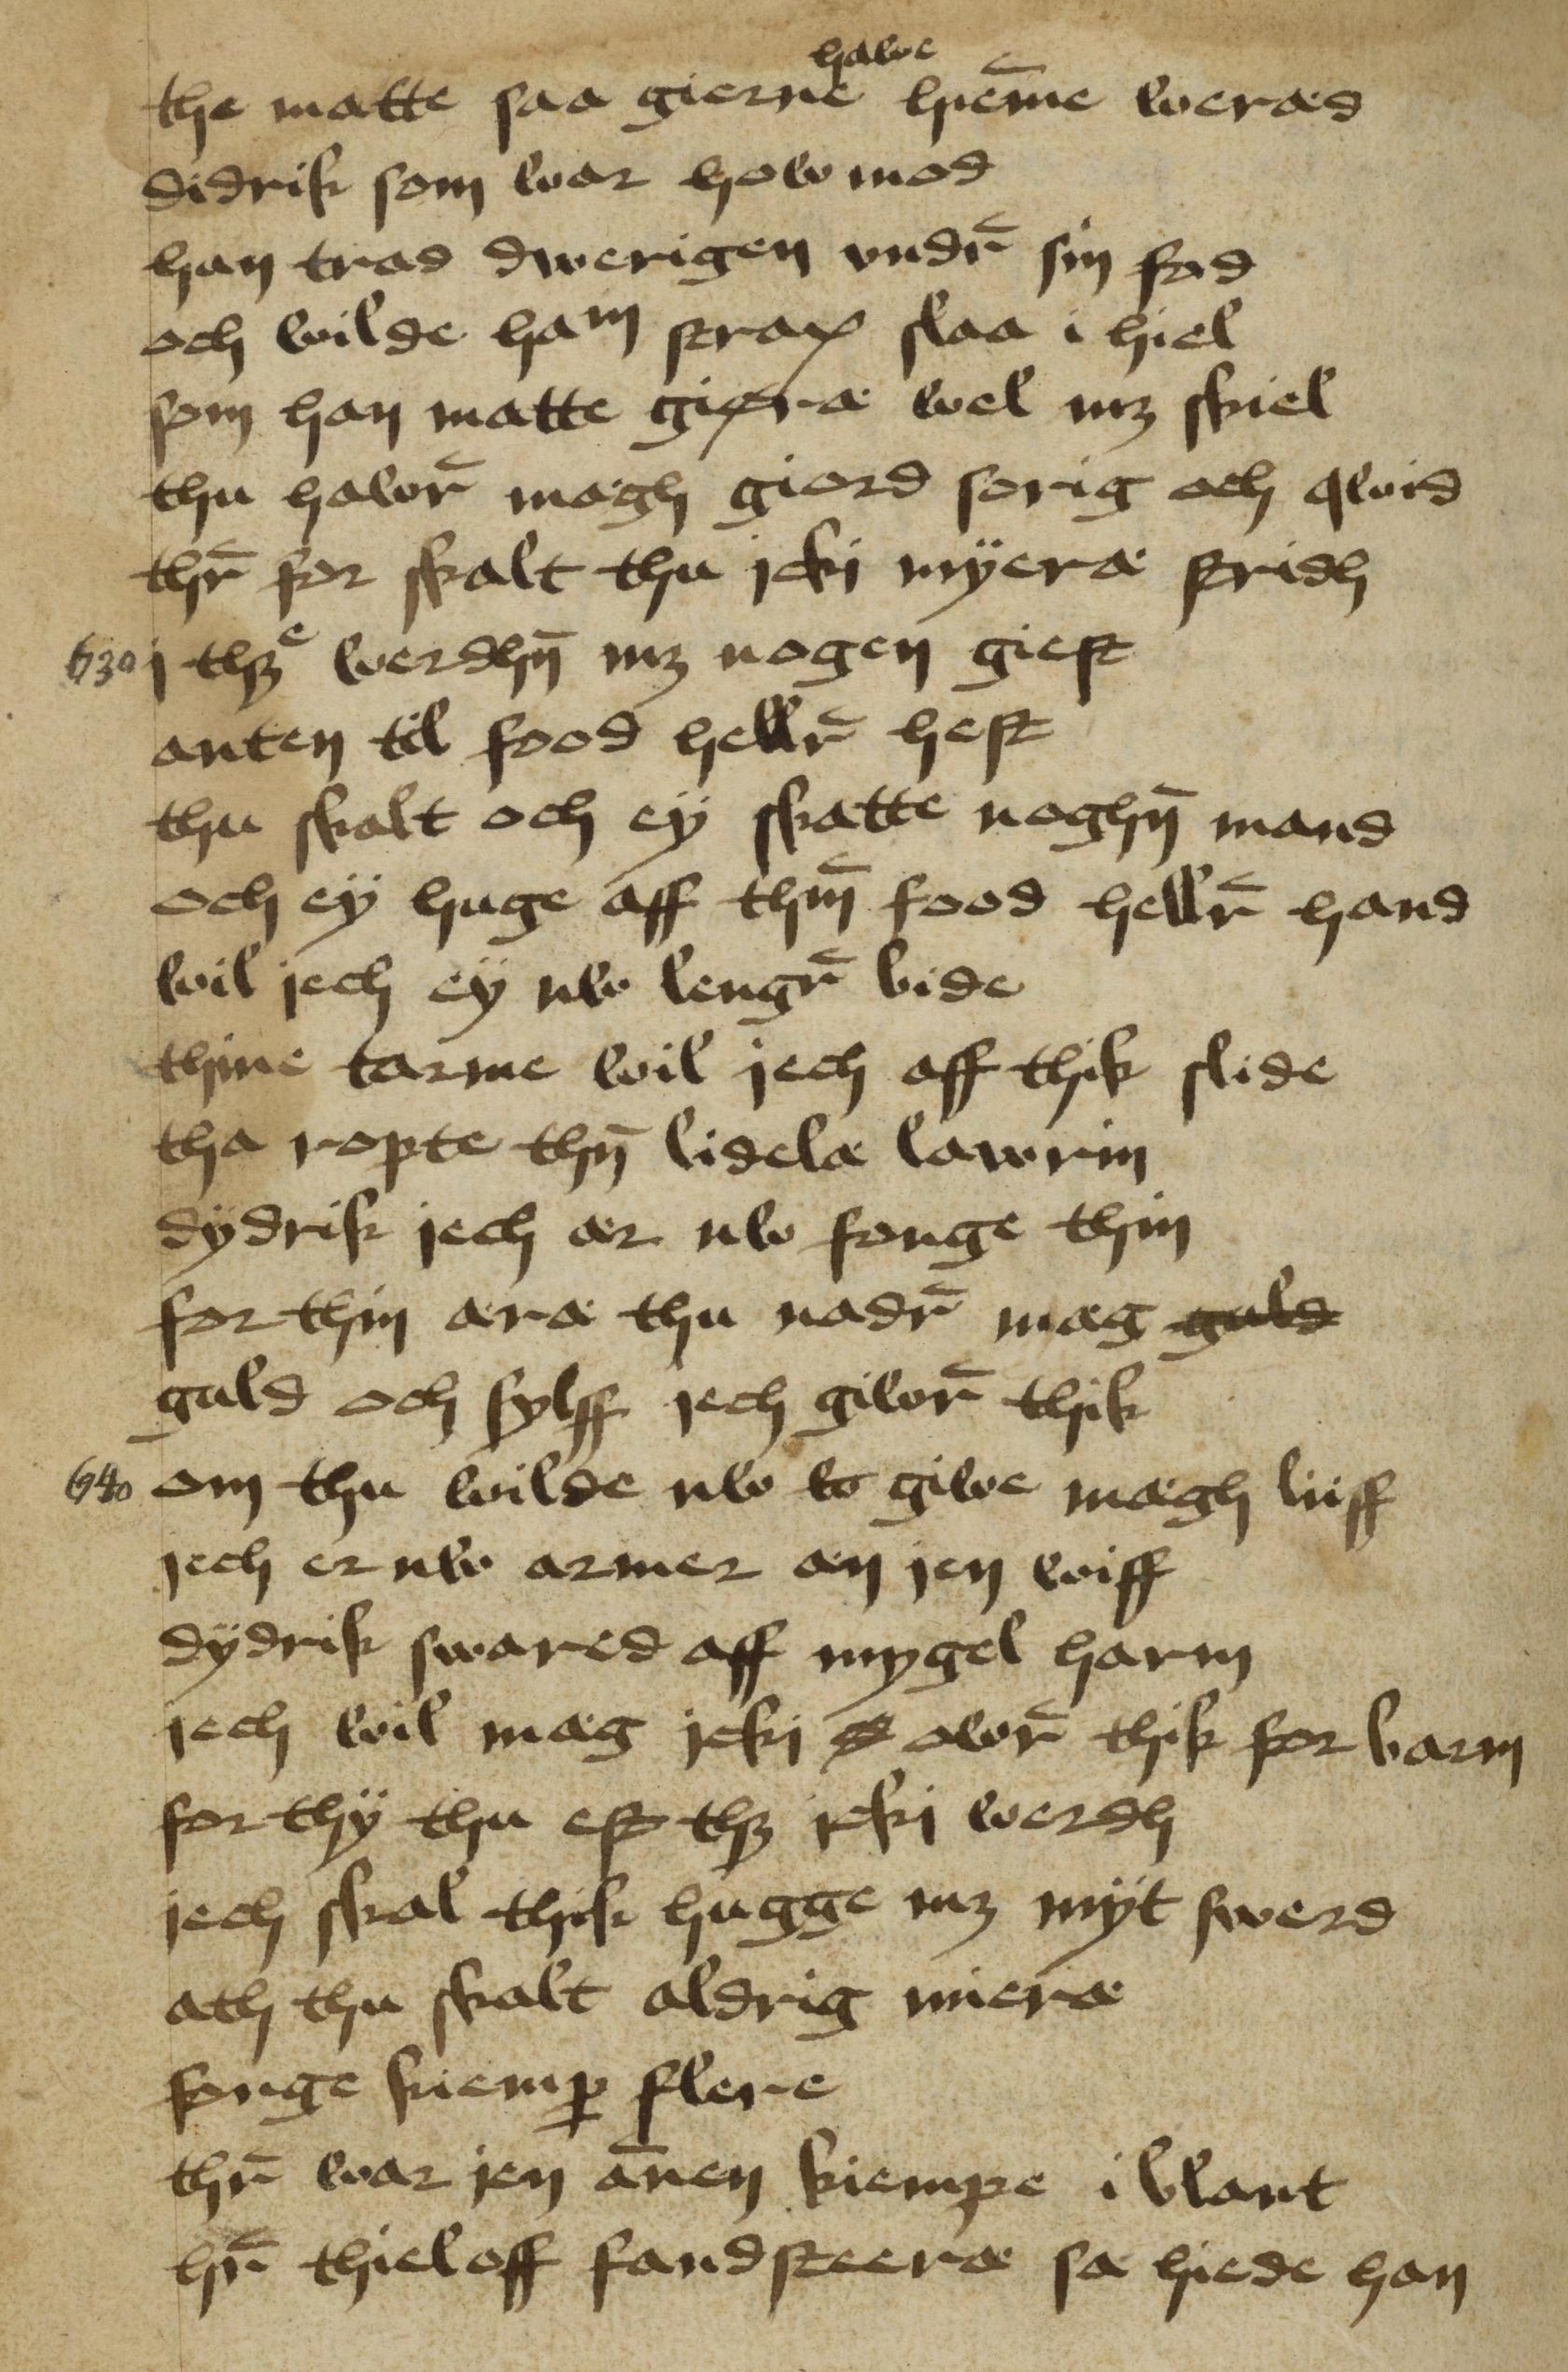 the matte saa gierne hawe hie̅me weræd
didrik som war how mod
han trad dwerigen vndr̄ sin fod
och wilde ham strax slaa i hiel
som han matte giøræ wel mꝫ skiel
thu hawr̄ mægh giord sorig och qwid
thr̄ for skalt thu jcki mÿeræ stridh
630 j thꝫe werdhn̄ mꝫ nogen giest
anten til food hellr̄ hest
thu skalt och eÿ skatte noghn̄ mand
och eÿ huge aff thm̄ food hellr̄ hand
wil jech eÿ nw lengr̄ bide
thine tarme wil jech aff thik slide
tha ropte thn̄ lidelæ lawrin
dÿdrik jech ær nw fonge thin
for thin æræ thu nadr̄ mæg guld
guld och sylff jech giwr̄ thik
640 om thu wilde nw giwe mægh liiff
jech er nw armer æn jen wiff
dÿdrik swared aff mygel harm
jech wil mæg jcki owr̄ thik for barm
for thÿ thu est thꝫ jcki werdh
jech skal thik hugge mꝫ mÿt swerd
ath thu skalt aldrig mieræ
fonge kiemꝑ flere
thr̄ war jen an̄en kiempe i blant
hr̄ thieloff fandsteeræ sa hiede han